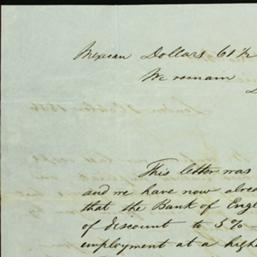 Mexican Dollars 61 ½
We remain
This letter was
and we have now alrea
that the Bank of Engl
of discount to 5%
employment at a high